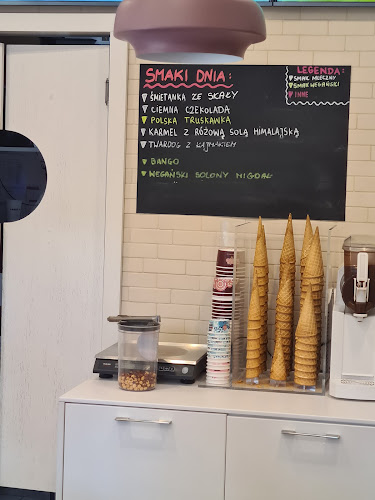 SMAKI DNIA:
ŚMIETANKA ZE SKAŁY
CIEMNA CZEKOLADA
POLSKA TRUSKAWKA
KARMEL Z RÓŻOWĄ SOLĄ HIMALAJSKĄ
TWARÓG Z KAJMAKIEM
BANGO
WEGAŃSKI SOLONY MIGDAŁ
LEGENDA:
SMAK MLECZNY
SMAK WEGAŃSKI
INNE